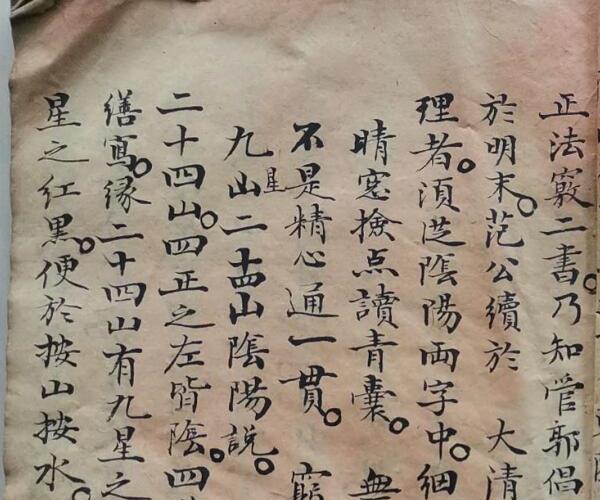 正法竅二書。乃知管郭倡
於明末。范公續於 大清
理者。湏從隂陽両字中。細
晴窓撿点讀青囊。無
不是精心通一貫。窮
九星山二十四山隂陽說。
二十四山。四正之左皆隂。四
繕寫。緣二十四山有九星之
星之红黑。便於按山按水。